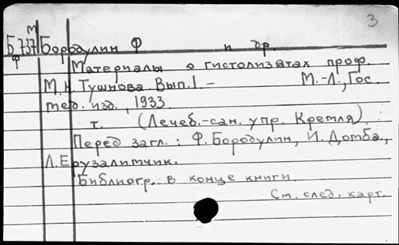 3
М
Б 737 Бородулин Ф и др.
Ф
Материалы о гистолизатах проф.
М.Н. Тушнова. Вып. 1 – М.-Л., Гос.
мед. изд. 1933.
т. (Лечеб.-сан. упр. Кремля).
Перед загл.: Ф. Бородулин, И. Домба.,
Л. Ерузалимчик.
Библиогр. в конце книги.
См. след. карт.